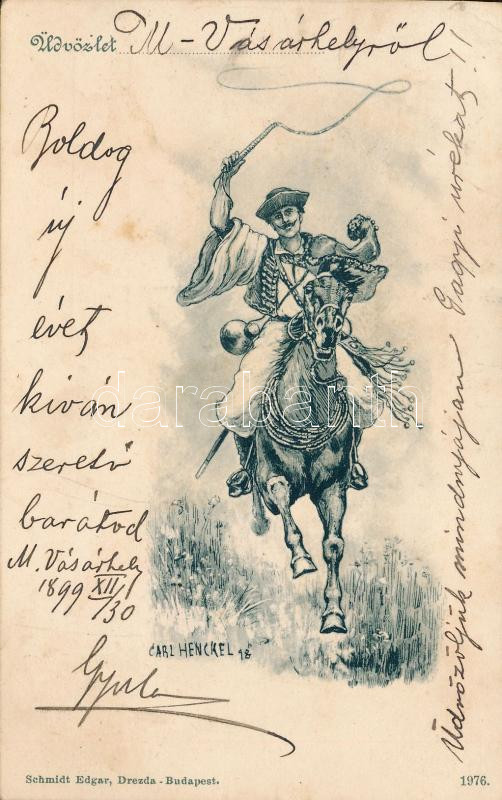 Üdvözlet M-Vásárhelyről
Boldog
új
évet
kiván
szerető
barátod
M. Vásárhely
1899 XII/30
Gyula
Üdvözöljük mindnyájan Gagyi urékat!!
darabanth
CARL HENCKEL 98
Schmidt Edgar, Drezda - Budapest.
1976.